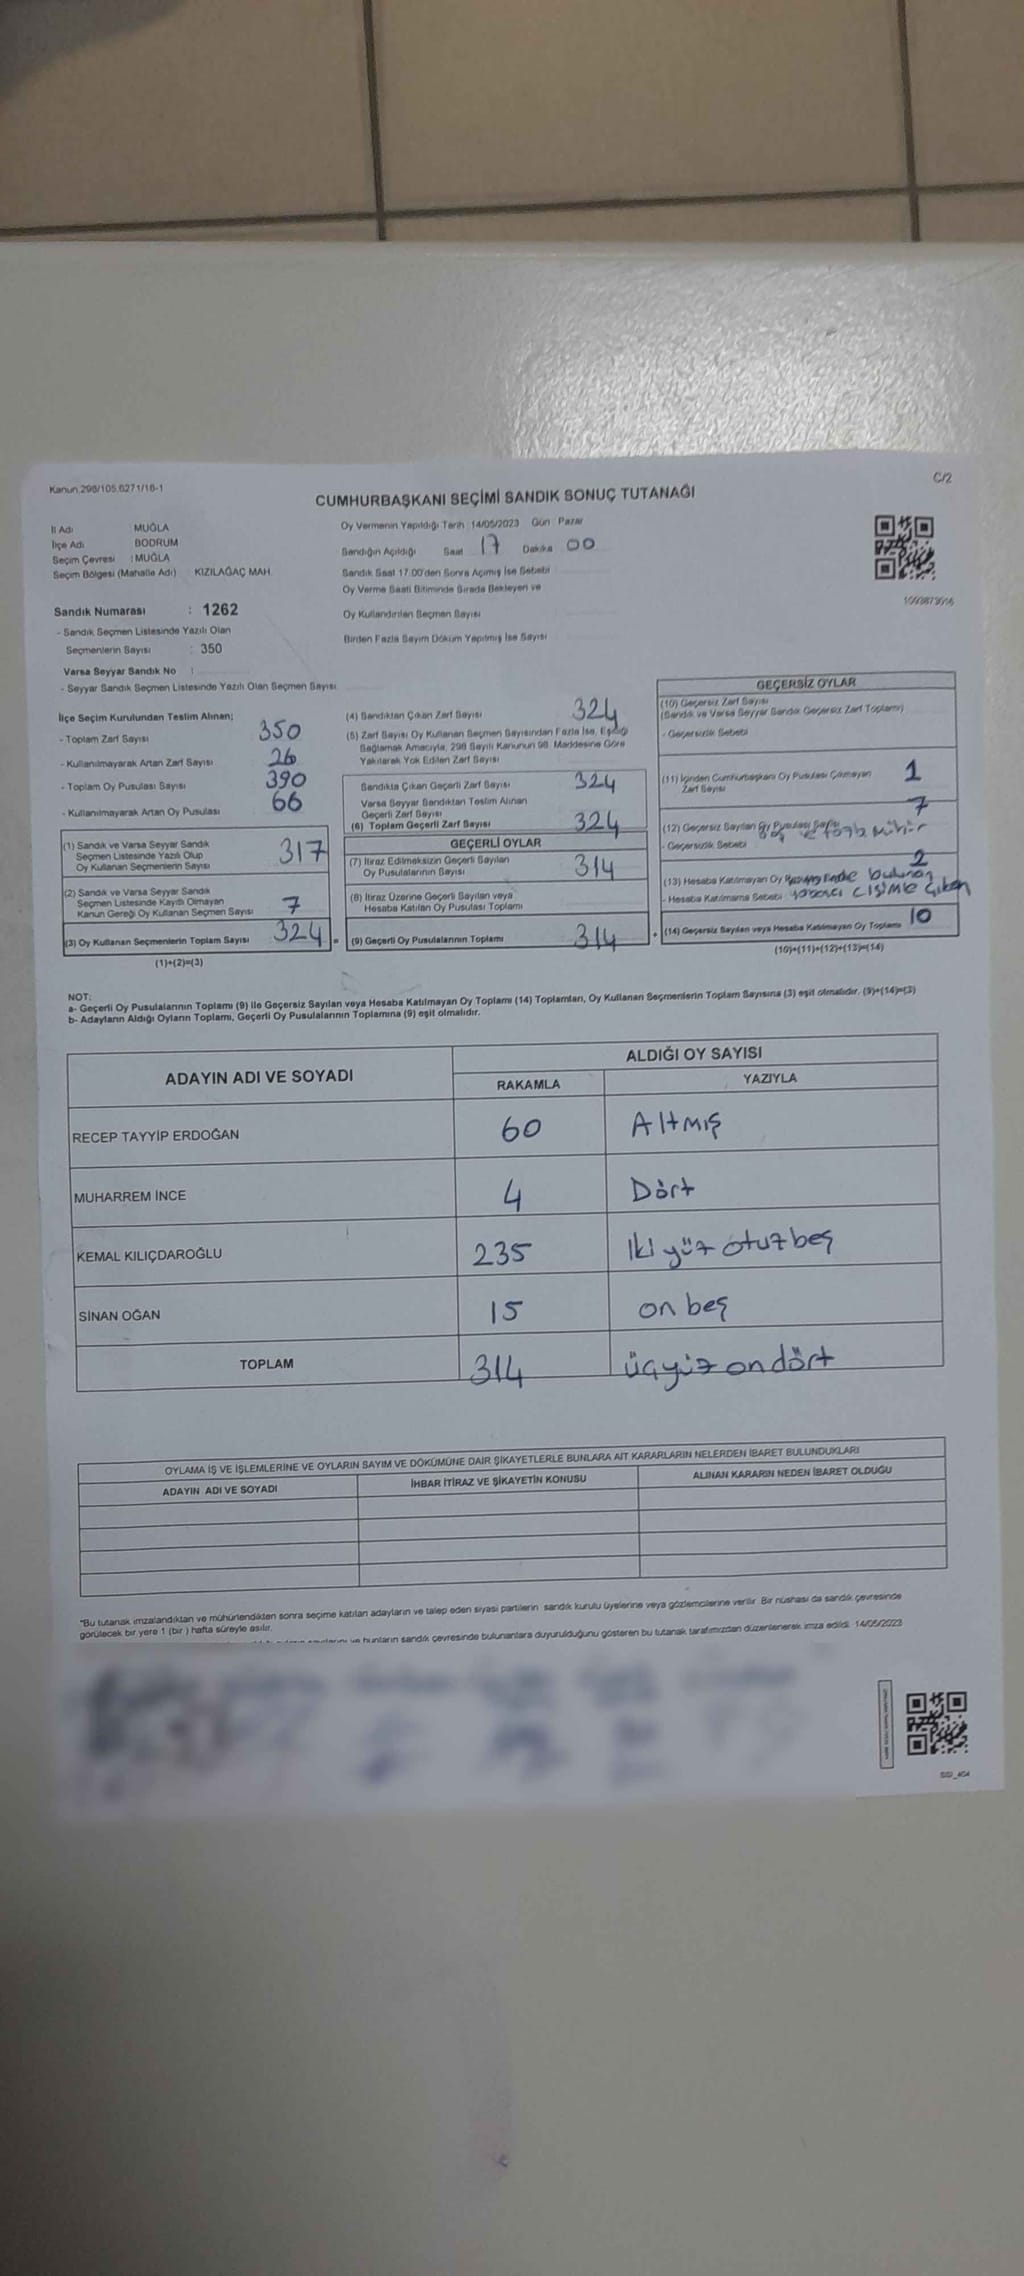 Kanun.298/105,6271/16-1
C/2
CUMHURBAŞKANI SEÇİMİ SANDIK SONUÇ TUTANAĞI
İl Adı MUĞLA
İlçe Adı BODRUM
Seçim Çevresi : MUĞLA
Seçim Bölgesi (Mahalle Adı) KIZILAĞAÇ MAH.
Sandık Numarası : 1262
- Sandık Seçmen Listesinde Yazılı Olan
Seçmenlerin Sayısı : 350
Varsa Seyyar Sandık No :
- Seyyar Sandık Seçmen Listesinde Yazılı Olan Seçmen Sayısı
Oy Vermenin Yapıldığı Tarih : 14/05/2023 Gün : Pazar
Sandığın Açıldığı Saat 17 Dakika 00
Sandık Saat 17.00'den Sonra Açılmış İse Sebebi
Oy Verme Saati Bitiminde Sırada Bekleyen ve
Oy Kullandırılan Seçmen Sayısı
Birden Fazla Sayım Döküm Yapılmış İse Sayısı
İlçe Seçim Kurulundan Teslim Alınan;
- Toplam Zarf Sayısı 350
- Kullanılmayarak Artan Zarf Sayısı 26
- Toplam Oy Pusulası Sayısı 390
- Kullanılmayarak Artan Oy Pusulası 66
(1) Sandık ve Varsa Seyyar Sandık
Seçmen Listesinde Yazılı Olup
Oy Kullanan Seçmenlerin Sayısı 317
(2) Sandık ve Varsa Seyyar Sandık
Seçmen Listesinde Kayıtlı Olmayan
Kanun Gereği Oy Kullanan Seçmen Sayısı 7
(3) Oy Kullanan Seçmenlerin Toplam Sayısı 324 =
(1)+(2)=(3)
(4) Sandıktan Çıkan Zarf Sayısı 324
(5) Zarf Sayısı Oy Kullanan Seçmen Sayısından Fazla İse, Eşitliği
Sağlamak Amacıyla, 298 Sayılı Kanunun 98. Maddesine Göre
Yakılarak Yok Edilen Zarf Sayısı
Sandıkta Çıkan Geçerli Zarf Sayısı 324
Varsa Seyyar Sandıktan Teslim Alınan
Geçerli Zarf Sayısı
(6) Toplam Geçerli Zarf Sayısı 324
GEÇERLİ OYLAR
(7) İtiraz Edilmeksizin Geçerli Sayılan
Oy Pusulalarının Sayısı 314
(8) İtiraz Üzerine Geçerli Sayılan veya
Hesaba Katılan Oy Pusulası Toplamı
(9) Geçerli Oy Pusulalarının Toplamı 314 +
GEÇERSİZ OYLAR
(10) Geçersiz Zarf Sayısı
(Sandık ve Varsa Seyyar Sandık Geçersiz Zarf Toplamı)
- Geçersizlik Sebebi
(11) İçinden Cumhurbaşkanı Oy Pusulası Çıkmayan
Zarf Sayısı 1
(12) Geçersiz Sayılan Oy Pusulası Sayısı 7
- Geçersizlik Sebebi mühür
(13) Hesaba Katılmayan Oy 2
bulunan
- Hesaba Katılmama Sebebi yabancı cisimle çıkan
(14) Geçersiz Sayılan veya Hesaba Katılmayan Oy Toplamı 10
(10)+(11)+(12)+(13)=(14)
NOT:
a- Geçerli Oy Pusulalarının Toplamı (9) ile Geçersiz Sayılan veya Hesaba Katılmayan Oy Toplamı (14) Toplamları, Oy Kullanan Seçmenlerin Toplam Sayısına (3) eşit olmalıdır. (9)+(14)=(3)
b- Adayların Aldığı Oyların Toplamı, Geçerli Oy Pusulalarının Toplamına (9) eşit olmalıdır.
ADAYIN ADI VE SOYADI ALDIĞI OY SAYISI
RAKAMLA YAZIYLA
RECEP TAYYİP ERDOĞAN 60 Altmış
MUHARREM İNCE 4 Dört
KEMAL KILIÇDAROĞLU 235 İki yüz otuz beş
SİNAN OĞAN 15 on beş
TOPLAM 314 üçyüz on dört
OYLAMA İŞ VE İŞLEMLERİNE VE OYLARIN SAYIM VE DÖKÜMÜNE DAİR ŞİKAYETLERLE BUNLARA AİT KARARLARIN NELERDEN İBARET BULUNDUKLARI
ADAYIN ADI VE SOYADI İHBAR İTİRAZ VE ŞİKAYETİN KONUSU ALINAN KARARIN NEDEN İBARET OLDUĞU
"Bu tutanak imzalandıktan ve mühürlendikten sonra seçime katılan adayların ve talep eden siyasi partilerin sandık kurulu üyelerine veya gözlemcilerine verilir. Bir nüshası da sandık çevresinde
görülecek bir yere 1 (bir) hafta süreyle asılır.
ve bunların sandık çevresinde bulunanlara duyurulduğunu gösteren bu tutanak tarafımızdan düzenlenerek imza edildi. 14/05/2023